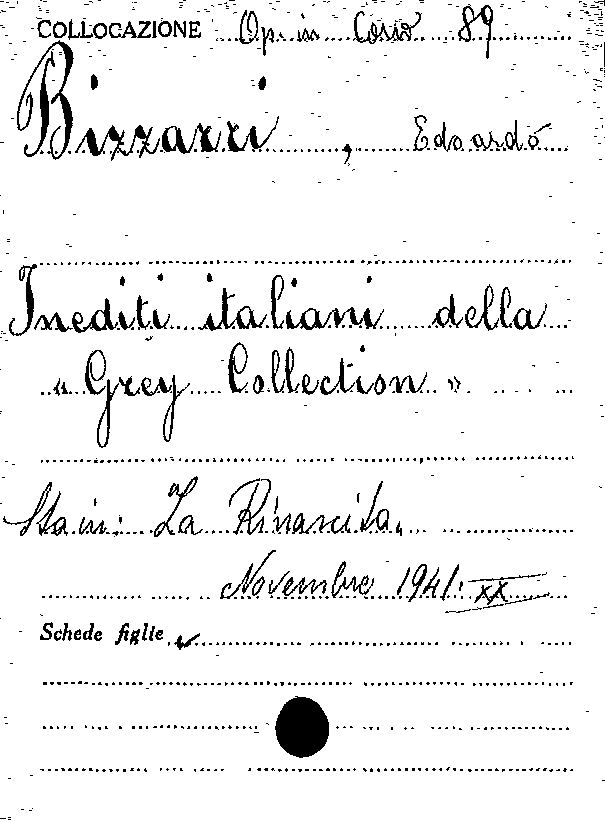 COLLOCAZIONE Op. in Corso 89
Bizzarri, Edoardo
Inediti italiani della
« Grey Collection »
Sta in: La Rinascita,
Novembre 1941: XX
Schede figlie